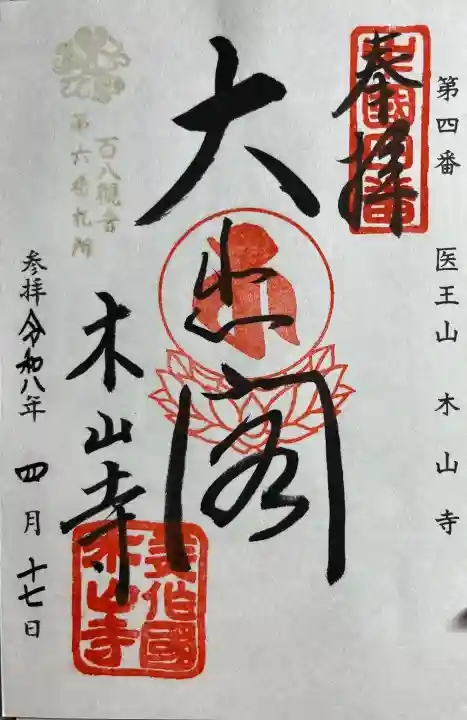 第四番 医王山 木山寺
奉拝
大悲閣
木山寺
百八観音
第六番札所
参拝 令和八年 四月 十七日
美作國
木山寺